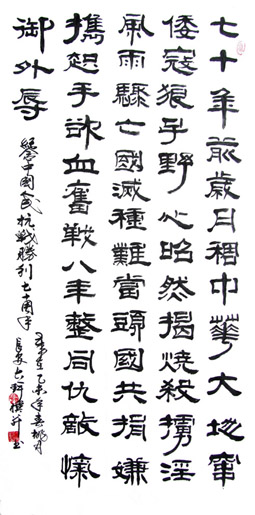 七十年前歲月稠中華大地窜
倭寇狼子野心昭然揭燒殺擄淫
風雨驟亡國滅種難當頭國共捐嫌
攜起手浴血奮戰八年整同仇敵愾
御外辱
中國人民抗戰勝利七十周年
乙未年春桃月
撰并書